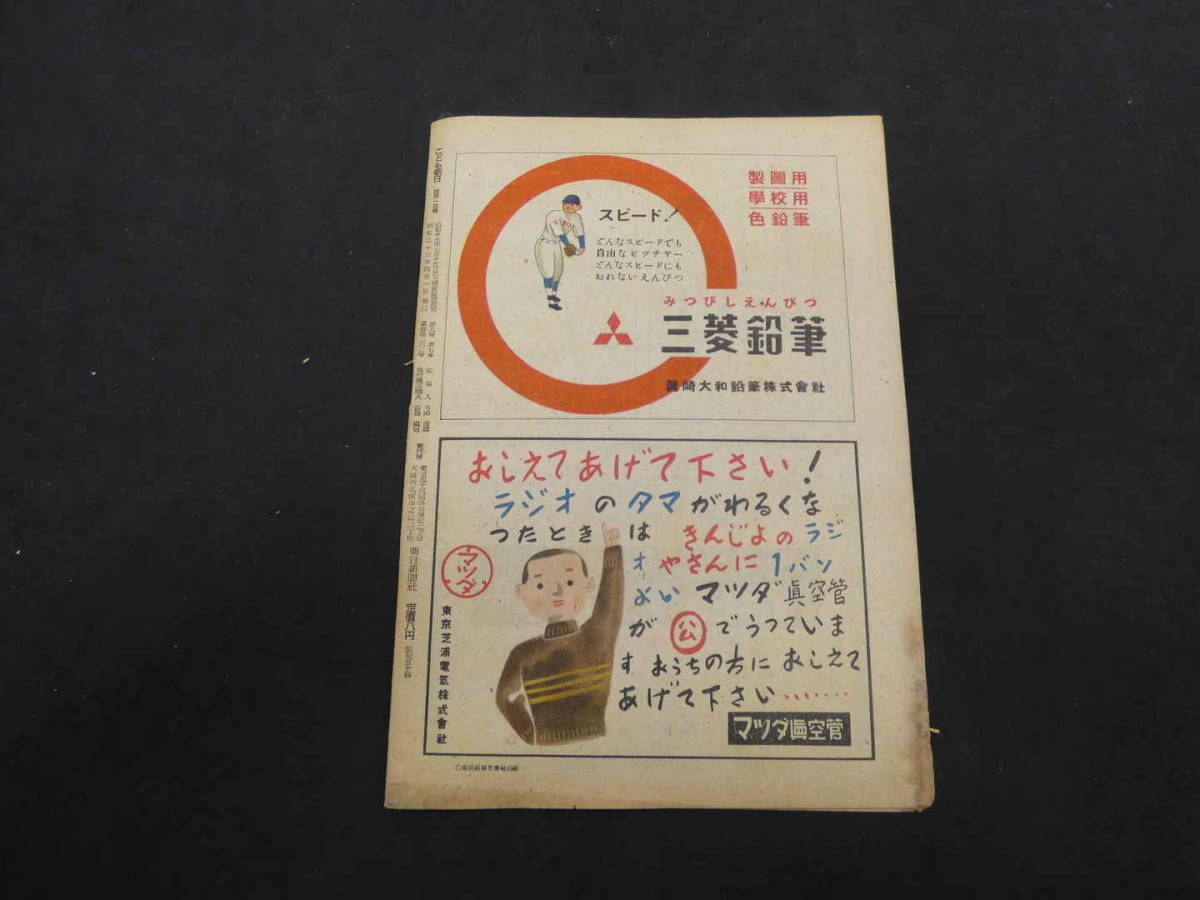 製圖用
學校用
色鉛筆
スピード!
どんなスピードでも
自由なピツチヤー
どんなスピードにも
おれないえんぴつ
みつびしえんぴつ
三菱鉛筆
眞崎大和鉛筆株式會社
おしえてあげて下さい!
ラジオのタマがわるくな
つたときは きんじよのラジ
オやさんに1バン
よいマツダ眞空管
が公でうつていま
す おうちの方におしえて
あげて下さい········
マツダ
東京芝浦電氣株式會社
マツダ眞空管
こども朝日
朝日新聞社
定價八円